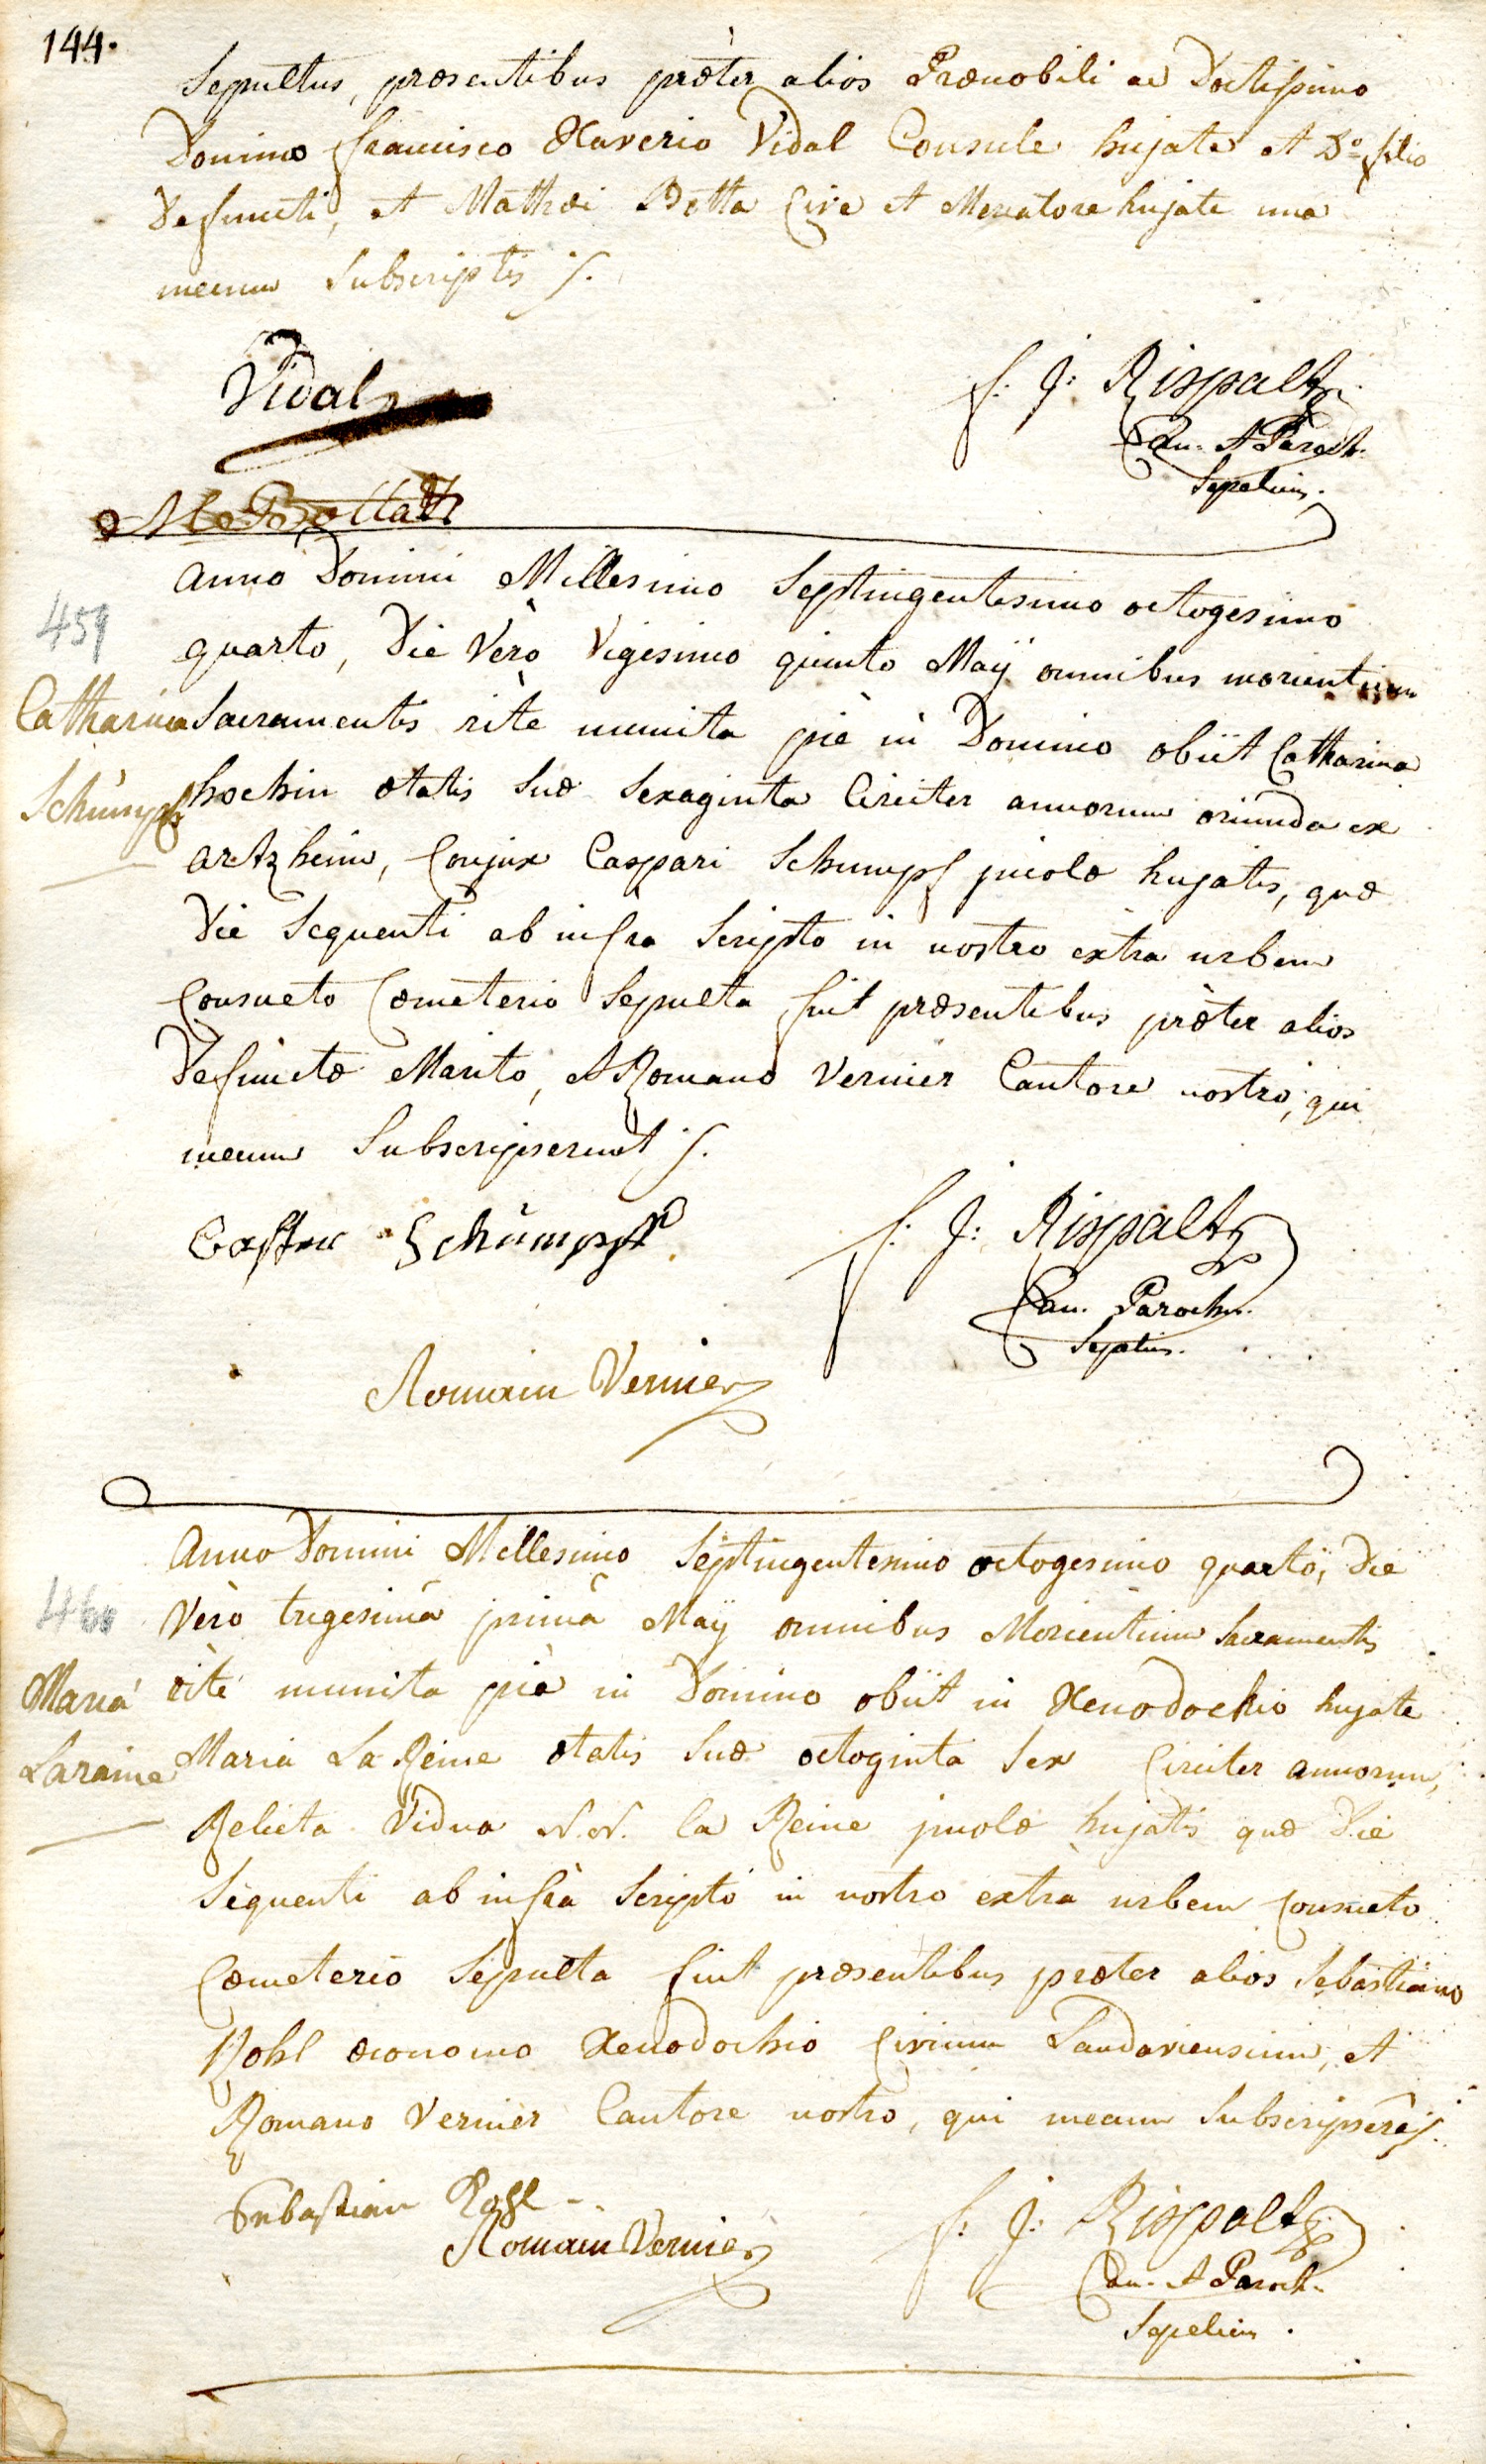 144.
Sepultus, præsentibus præter alios Prænobili ac Doctissimo
Domino francisco Xaverio Vidal Consule hujate et Do. filio
Defuncti, et Mathæi Botta Cive et Mercatore hujate una
mecum Subscriptis ./.
Vidal
f: J: Rispaltz
Can. et Paroch.
Sepeliens.
M Botta
Anno Domini Millesimo Septingentesimo octogesimo
459
quarto, Die Verò Vigesimo quinto Maÿ omnibus morientium
Catharina
Sacramentis rite munita piè in Domino obiit Catharina
Schümpf
hochin ætatis Suæ Sexaginta Circiter annorum oriunda ex
artzheim, Conjux Caspari Schumpf incolæ hujatis, quæ
Die Sequenti ab infra Scripto in nostro extra urbem
Consueto Cœmeterio Sepulta fuit præsentibus præter alios
Defunctæ Marito, et Romano Vernier Cantore nostro, qui
mecum Subscripserunt ./.
Casper Schümpff
f: J: Rispaltz
Can. Paroch.
Sepeliens.
Romain Vernier
Anno Domini Millesimo Septingentesimo octogesimo quarto, Die
460
Verò trigesimâ primâ Maÿ omnibus Morientium Sacramentis
Maria
ritè munita piè in Domino obiit in Xenodochio hujate
Laraine
Maria La Reine ætatis Suæ octoginta Sex Circiter annorum,
Relicta Vidua N.N. la Reine incolæ hujatis quæ Die
Sequenti ab infrà Scripto in nostro extra urbem Consueto
Cœmeterio Sepulta fuit præsentibus præter alios Sebastiano
Rohl œconomo Xenodochio Civium Landaviensium, et
Romano Vernier Cantore nostro, qui mecum Subscripsere ./.
Sebastian Rohl
Romain Vernier
f: J: Rispaltz
Can. et Paroch.
Sepeliens.